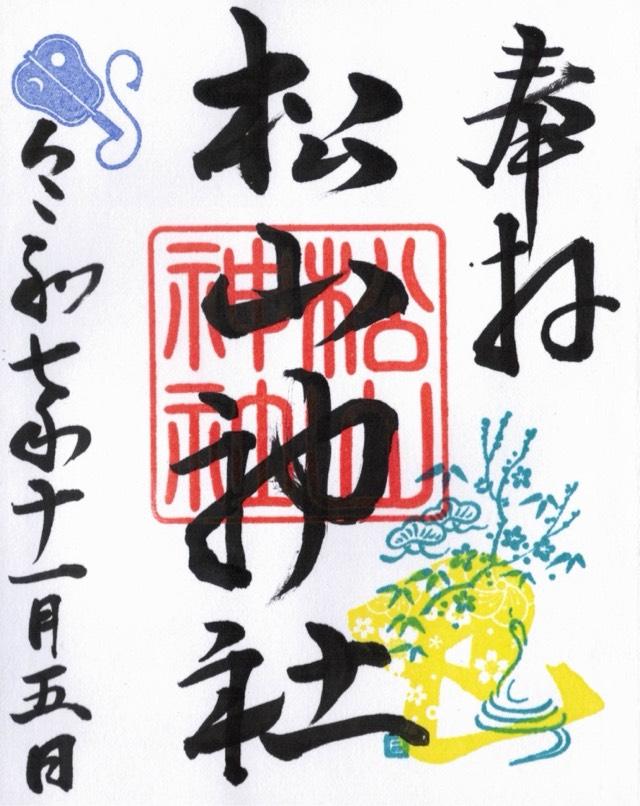 奉拝
松山神社
松山
神社
令和七年十一月五日